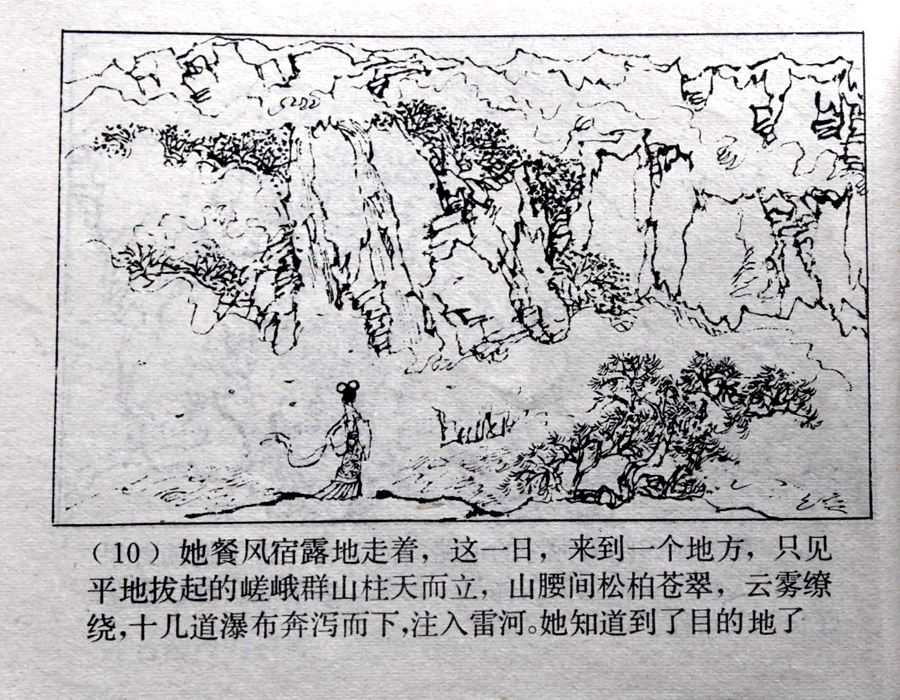 （10）她餐风宿露地走着，这一日，来到一个地方，只见
平地拔起的嵯峨群山柱天而立，山腰间松柏苍翠，云雾缭
绕，十几道瀑布奔泻而下，注入雷河。她知道到了目的地了